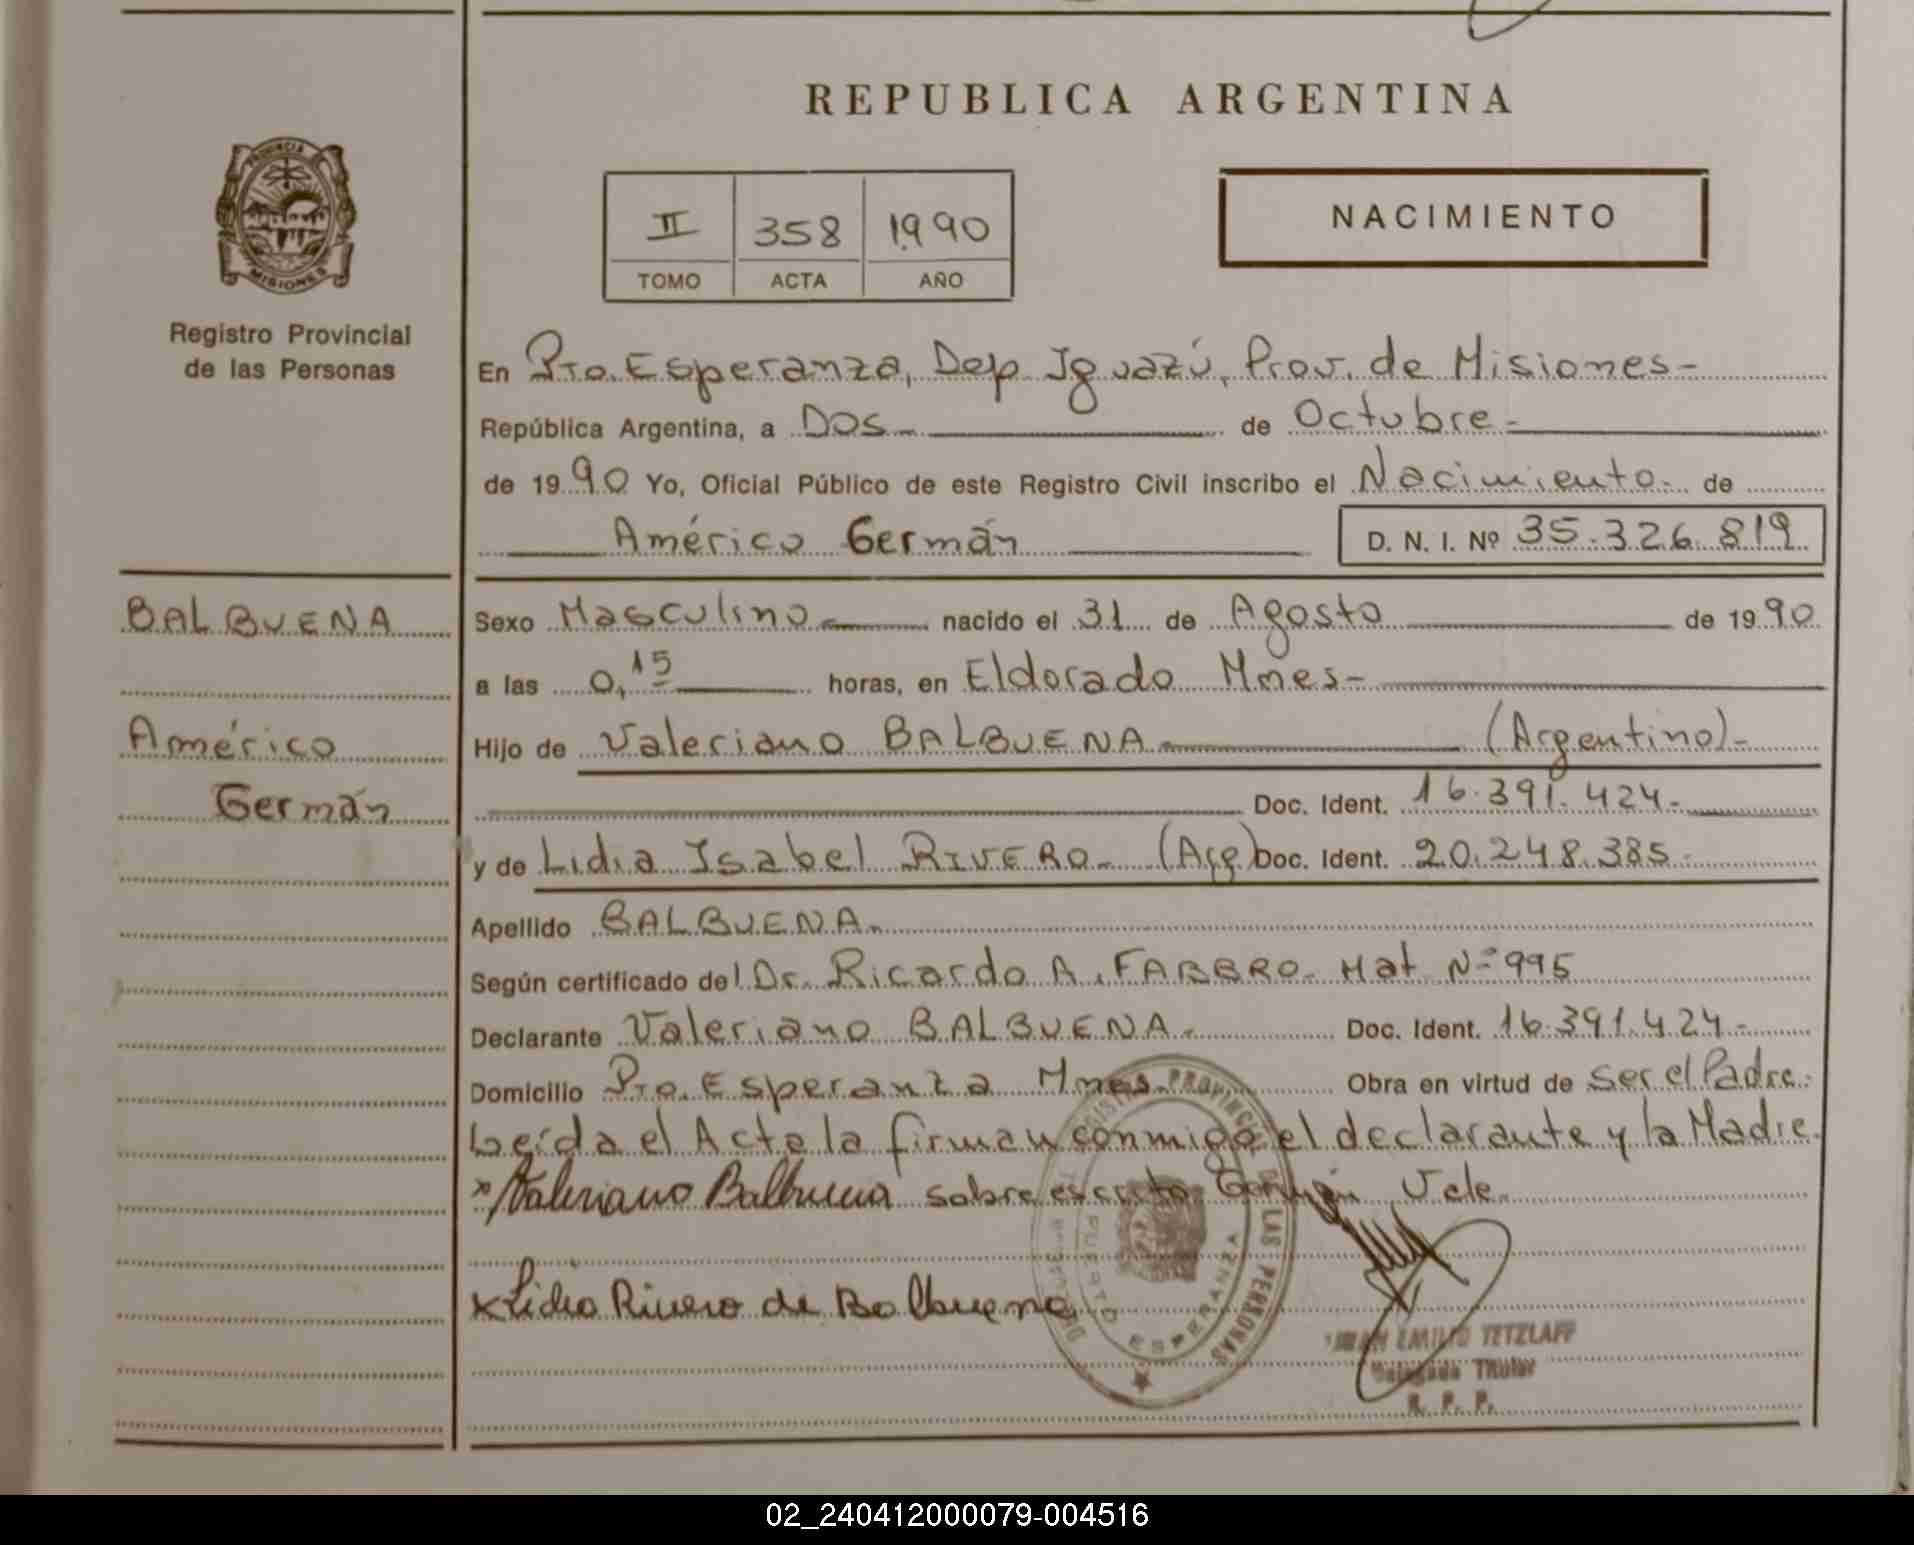 REPUBLICA ARGENTINA
PROVINCIA DE
MISIONES
Registro Provincial
de las Personas
II 358 1990
TOMO ACTA AÑO
NACIMIENTO
En Pto. Esperanza, Dep Iguazú, Prov. de Misiones-
República Argentina, a Dos- de Octubre-
de 1990 Yo, Oficial Público de este Registro Civil inscribo el Nacimiento- de
Américo Germán D. N. I. Nº 35.326.819
BALBUENA
Américo
Germán
Sexo Masculino nacido el 31 de Agosto de 1990
a las 0,15 horas, en Eldorado Mnes-
Hijo de Valeriano BALBUENA (Argentino)-
Doc. Ident. 16.391.424-
y de Lidia Isabel RIVERO- (Arg) Doc. Ident. 20.248.385-
Apellido BALBUENA-
Según certificado del Dr. Ricardo A. FABBRO- Mat Nº 995
Declarante Valeriano BALBUENA- Doc. Ident. 16.391.424-
Domicilio Pto. Esperanza Mnes- Obra en virtud de ser el Padre-
Leída el Acta la firman conmigo el declarante y la Madre
Valeriano Balbuena sobre escrito Germán Vale
x Lidia Rivero de Balbuena
REGISTRO PROVINCIAL DE LAS PERSONAS
PUERTO ESPERANZA
EMILIO TETZLAFF
Delegado Titular
R. P. P.
02_240412000079-004516